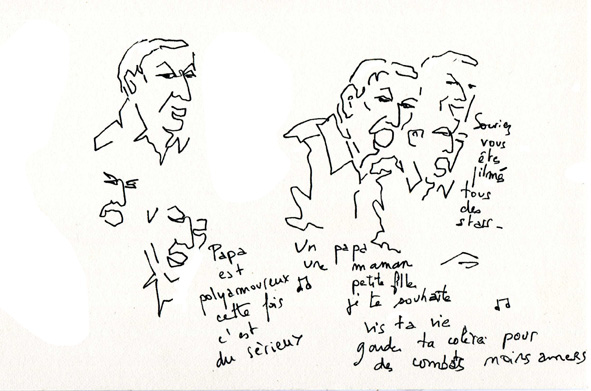 Souriez
vous
êtes
filmé
tous
des
stars
Papa
est
polyamoureux
cette fois
c'est
du sérieux
Un papa
une maman
petite fille
je te souhaite
vis ta vie
garde ta colère pour
des combats moins amers